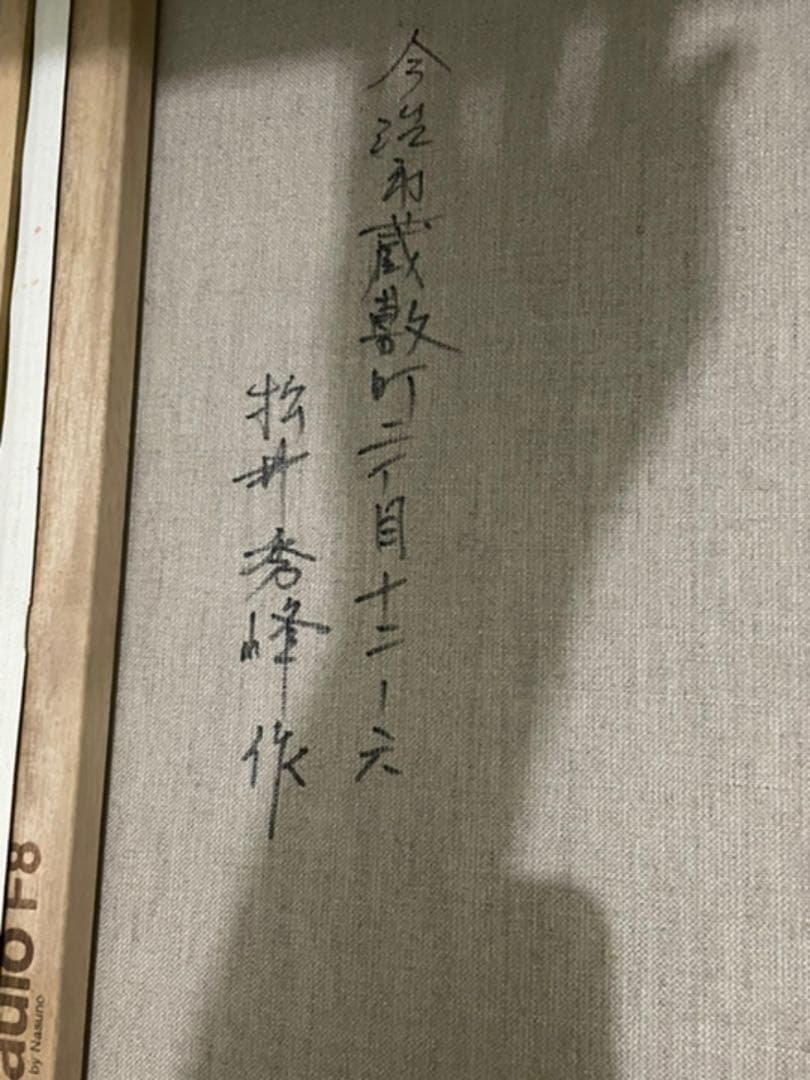 今治市蔵敷町二丁目十二ー六
松井秀峰作
audio F8
by Nasuno